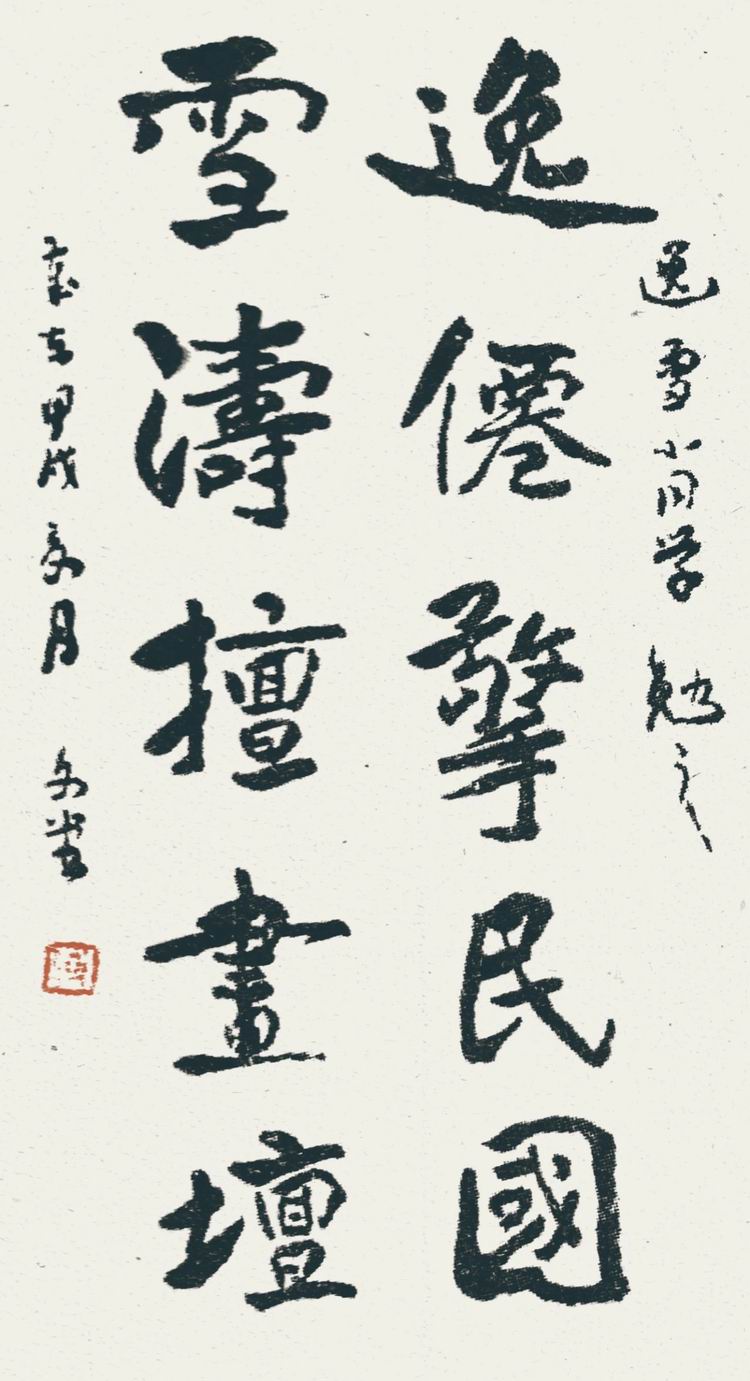 逸雪小同学 勉之
逸僊擎民國
雪濤擅畫壇
歲在甲戌 月